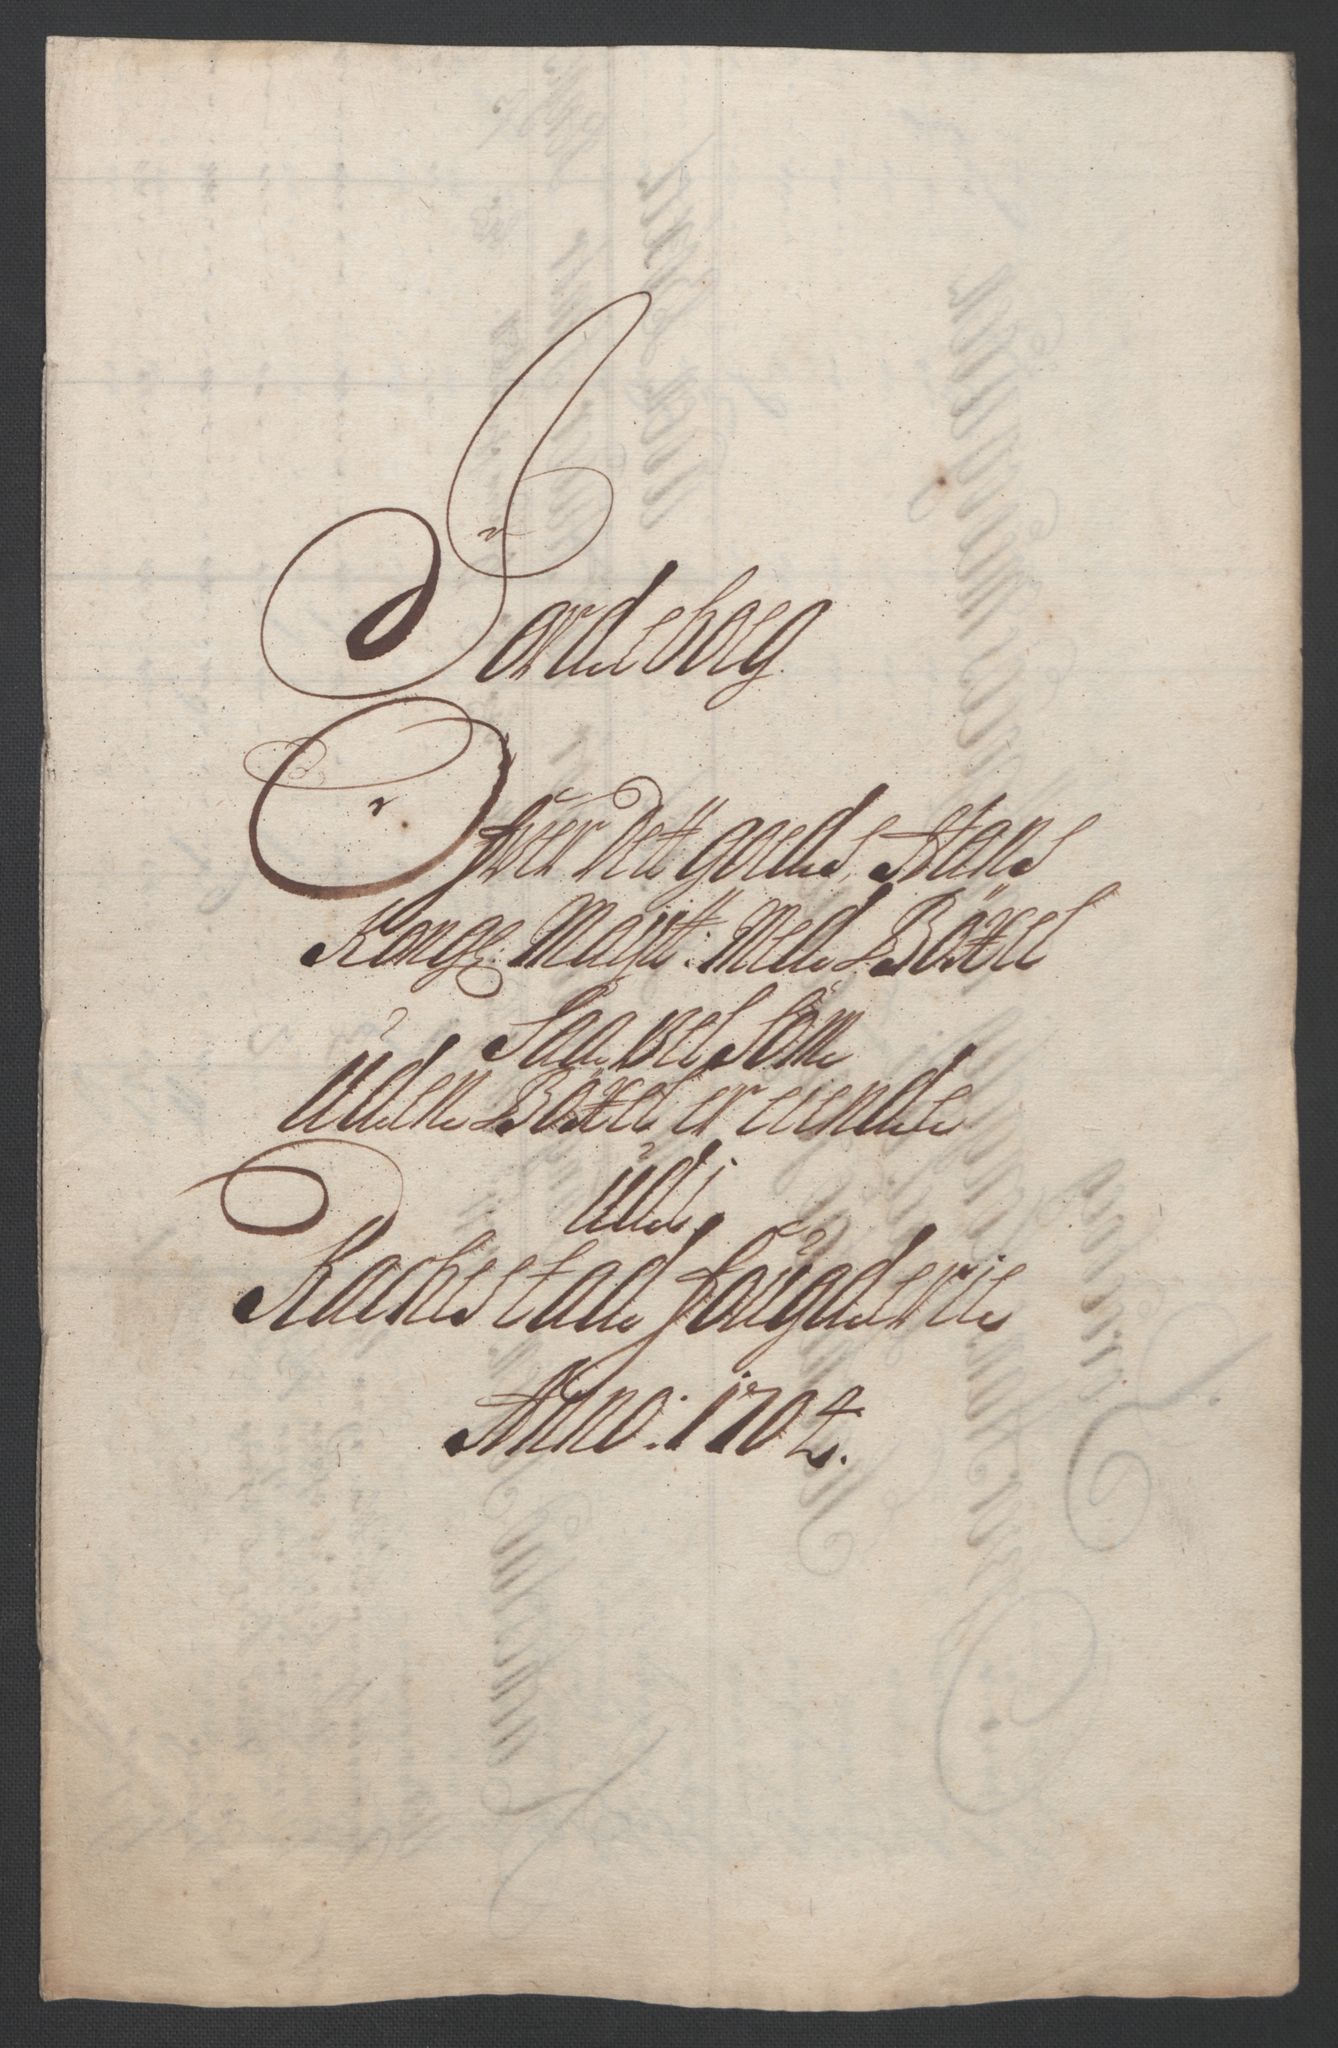 Jordeboeg
Ofver dett goeds, Hans
Kongе: Maytt: Med Böxel
Saa vel Som
Uden Böxel er eiende
Udi
Rachestad fougderie
Anno: 1704.